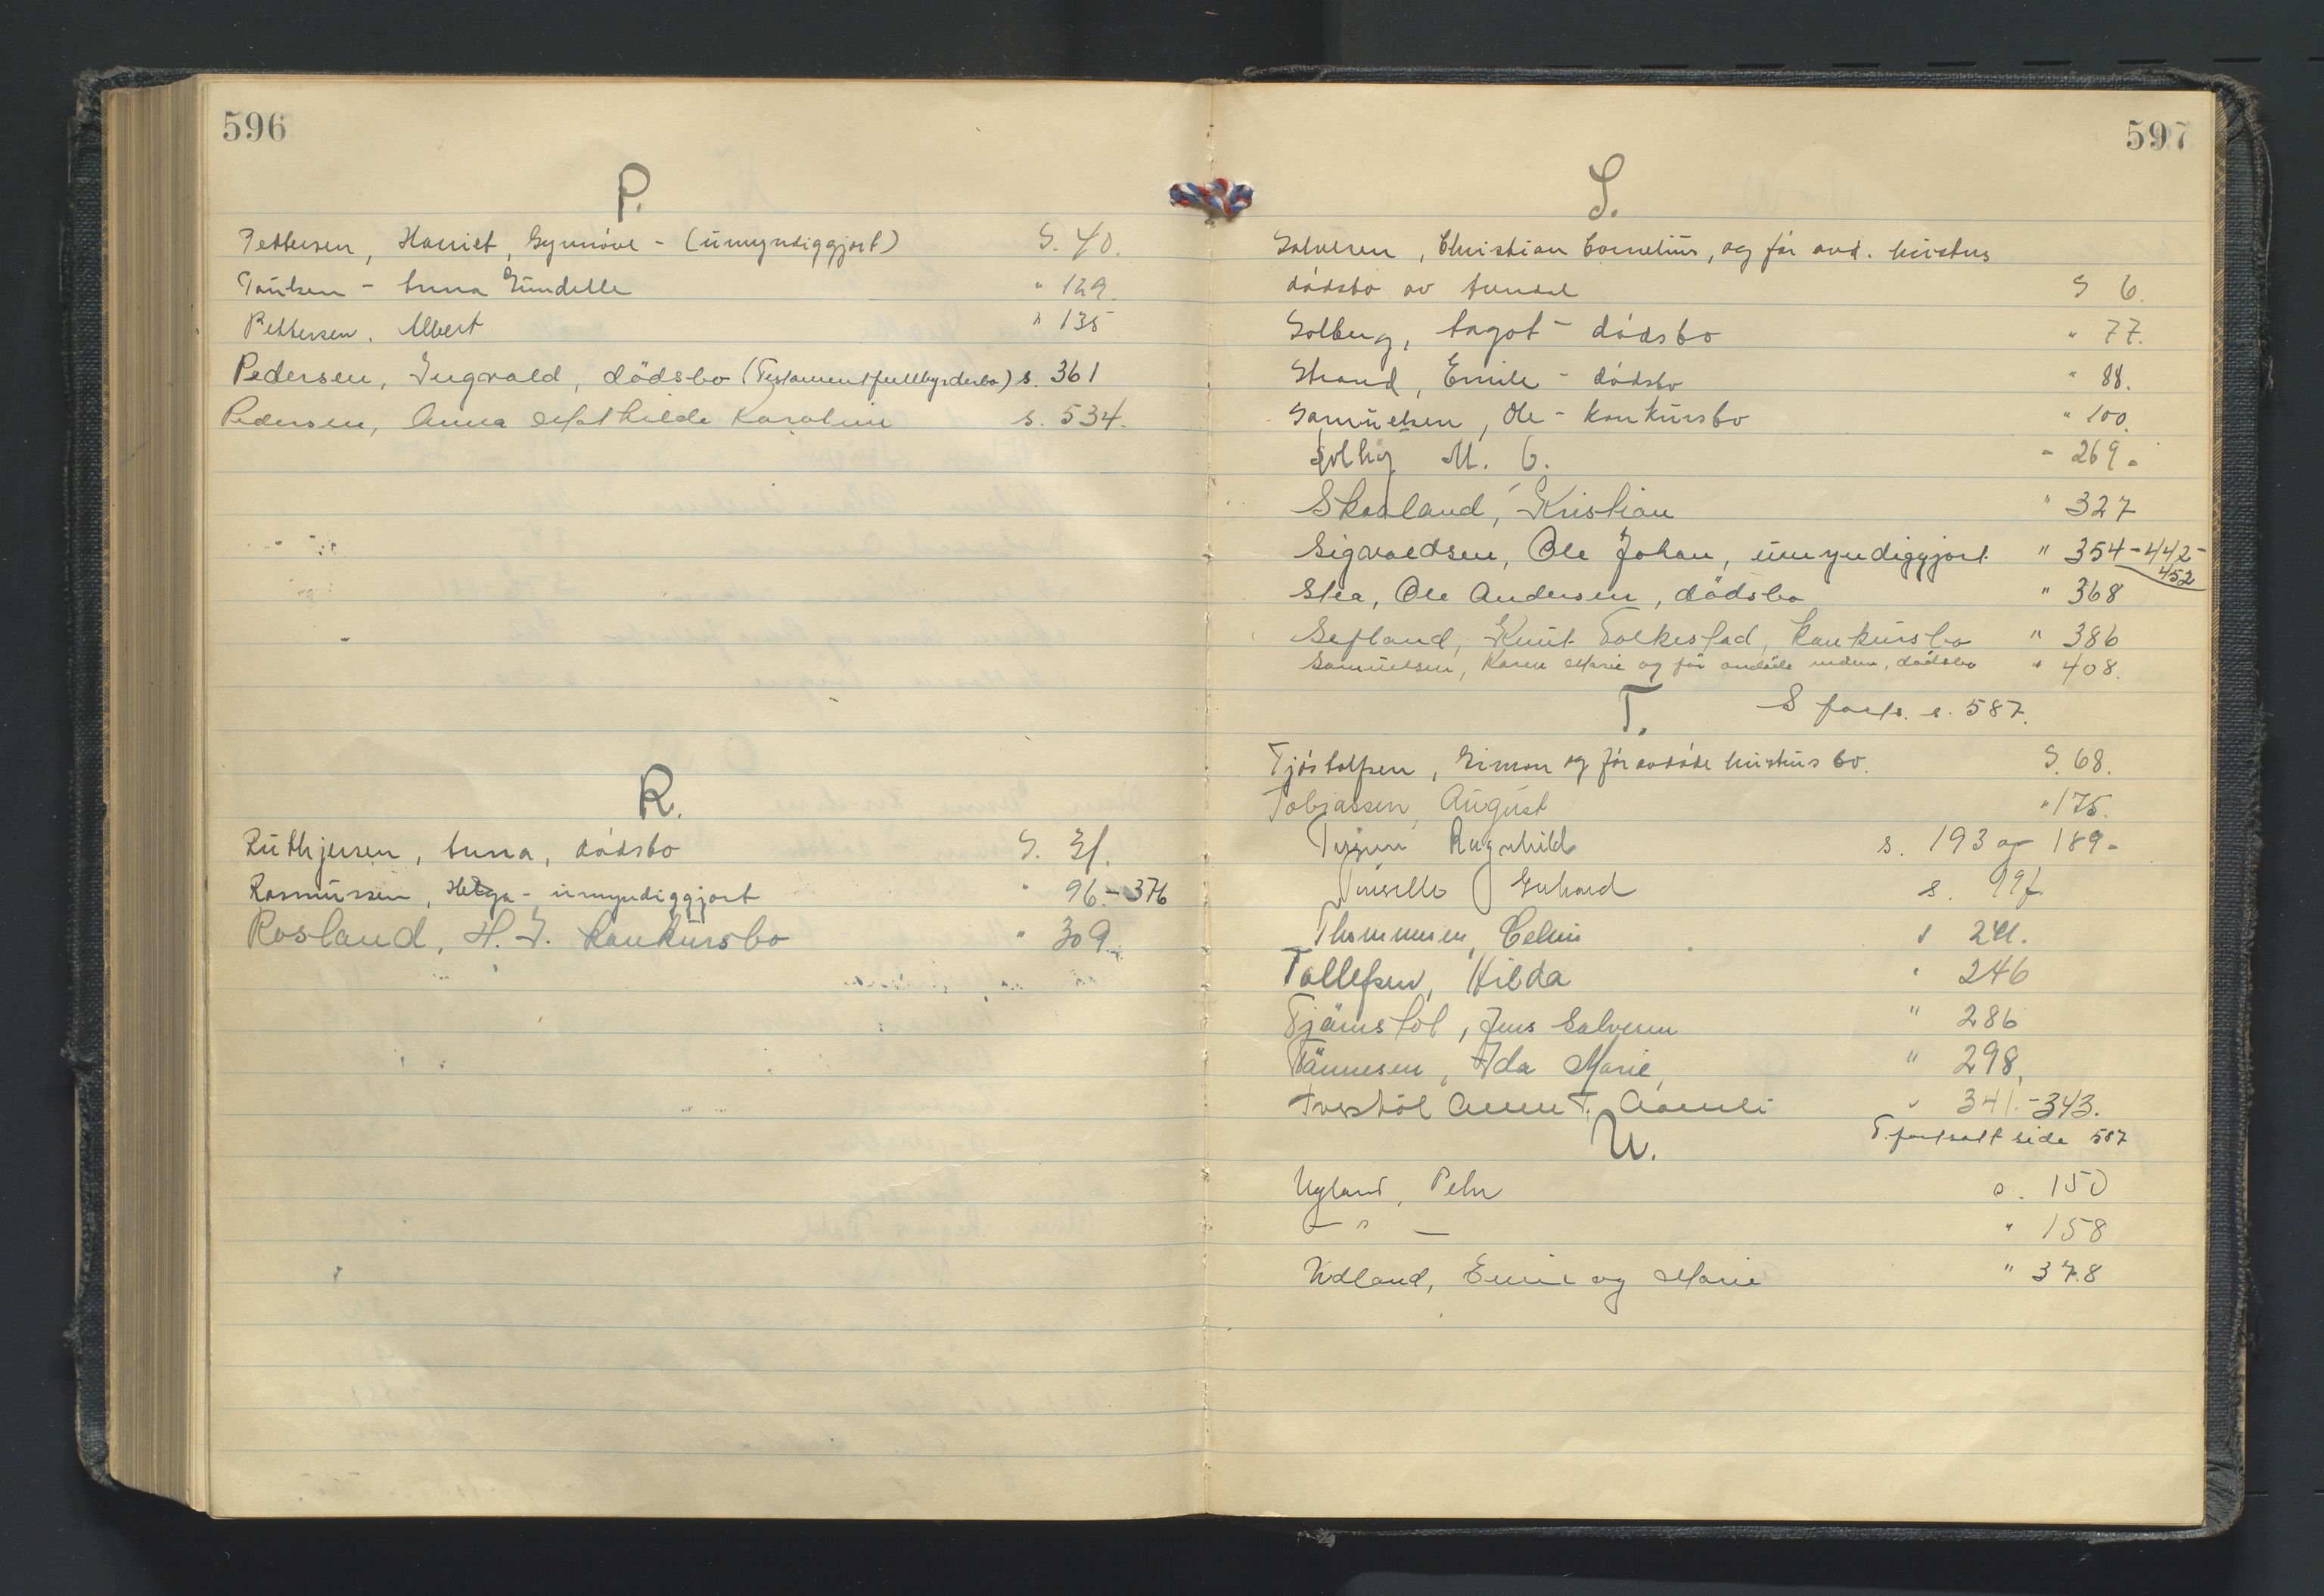 596
P.
Pettersen, Harriet, Synnöve - (umyndiggjort) S. 40.
Paulsen - Anna Gundelle " 129.
Pettersen. Albert " 135
Pedersen, Ingvald, dödsbo (Testamentfullbyrderbo) s. 361
Pedersen, Anna Mathilde Karoline s. 534.
R.
Ruthjersen, Anna, dödsbo S. 31.
Rasmussen, Helga - umyndiggjort " 96.-376
Rosland, H. J. konkursbo " 309.
597
S.
Salvesen, Christian Cornelius, og før avd. hustrus
dödsbo av Arendal S 6.
Solberg, Aagot - dödsbo " 77.
Strand, Emile - dödsbo " 88.
Samuelsen, Ole - konkursbo " 100.
M. C. - 269.
Skaaland, Kristian " 327
Sigvaldsen, Ole Johan, umyndiggjort " 354-442-
452
Slea, Ole Andersen, dödsbo " 368
Sefland, Knut Folkestad, konkursbo " 386
Samuelsen, Karen Marie og før avdöde mann, dödsbo " 408.
S forts. s. 587.
T.
Tjöstolfsen, Simon og før avdöde hustrus bo. S. 68.
Tobiassen, August " 175.
Ragnhild s. 193 og 189-
Gerhard s. 197
Thommesen, Celius s 241.
Tallefsen, Hilda " 246
Tjämstöl, Jens Salvesen " 286
Tännesen, Ida Marie, " 298,
Tveitstöl Anne T. Aamli " 341.-343.
T. fortsatt side 587
U.
Ugland, Peter s. 150
— " — " 158
Udland, Emil og Marie " 378